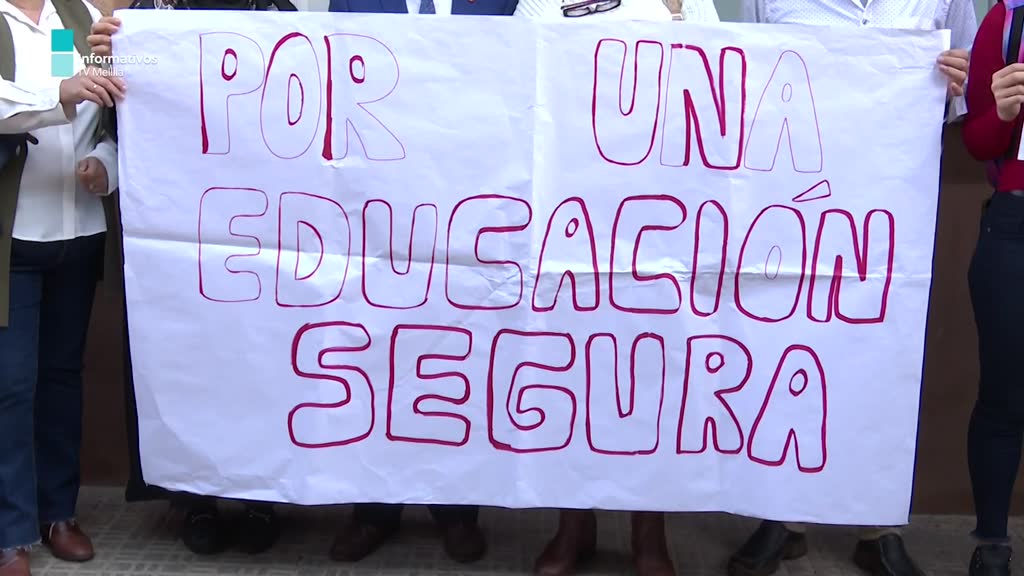 informativos
TV Melilla
POR UNA
EDUCACIÓN
SEGURA